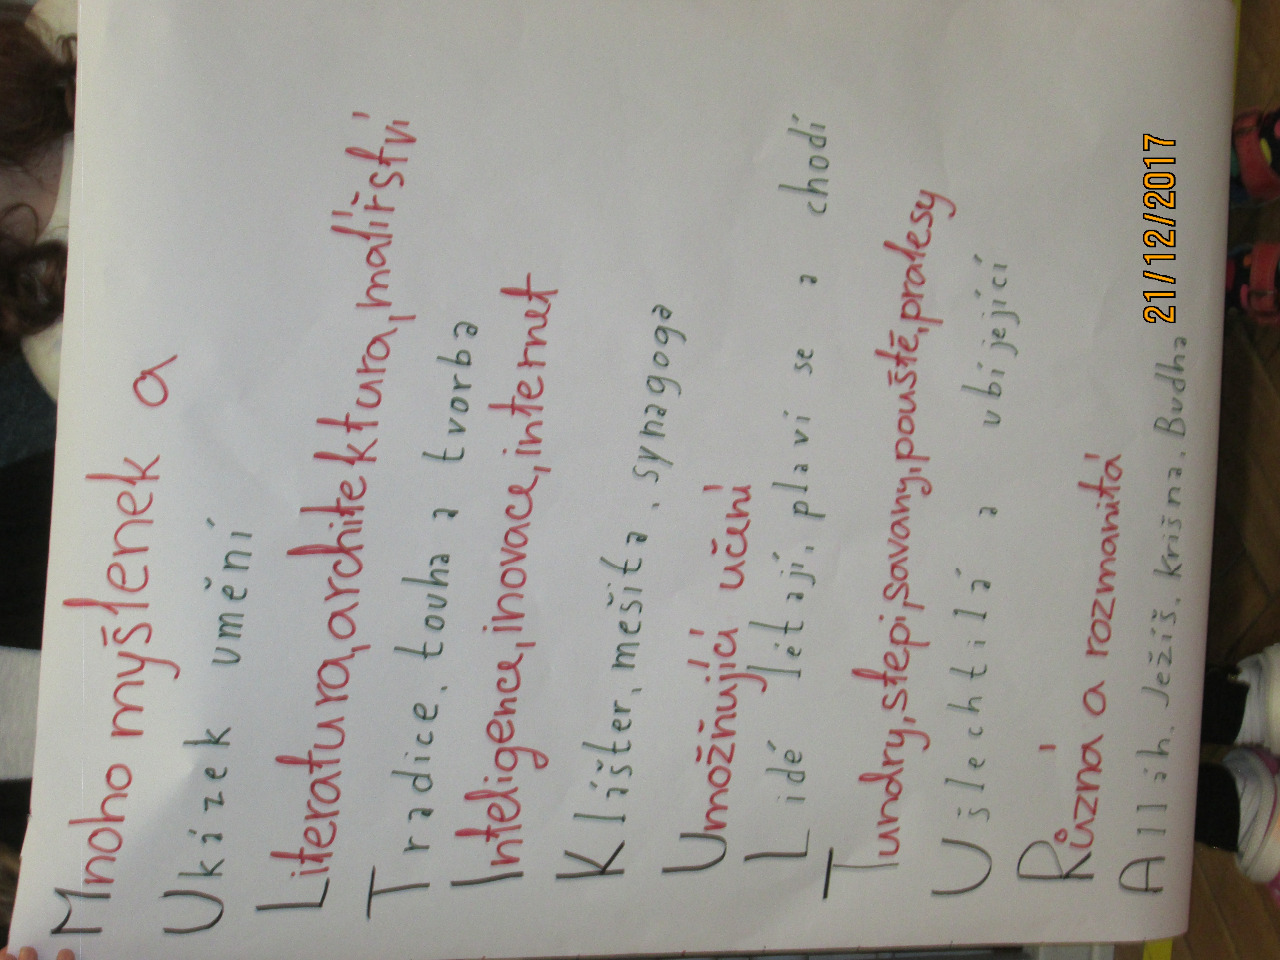 Mnoho myšlenek a
Ukázek umění
Literatura, architektura, malířství
Tradice, touha a tvorba
Inteligence, inovace, internet
Klášter, mešita, synagoga
Umožňující učení
Lidé létají, plaví se a chodí
Tundry, stepi, savany, pouště, pralesy
Ušlechtilá a ubíjející
Různá a rozmanitá
Alláh, Ježíš, krišna, Budha
21/12/2017